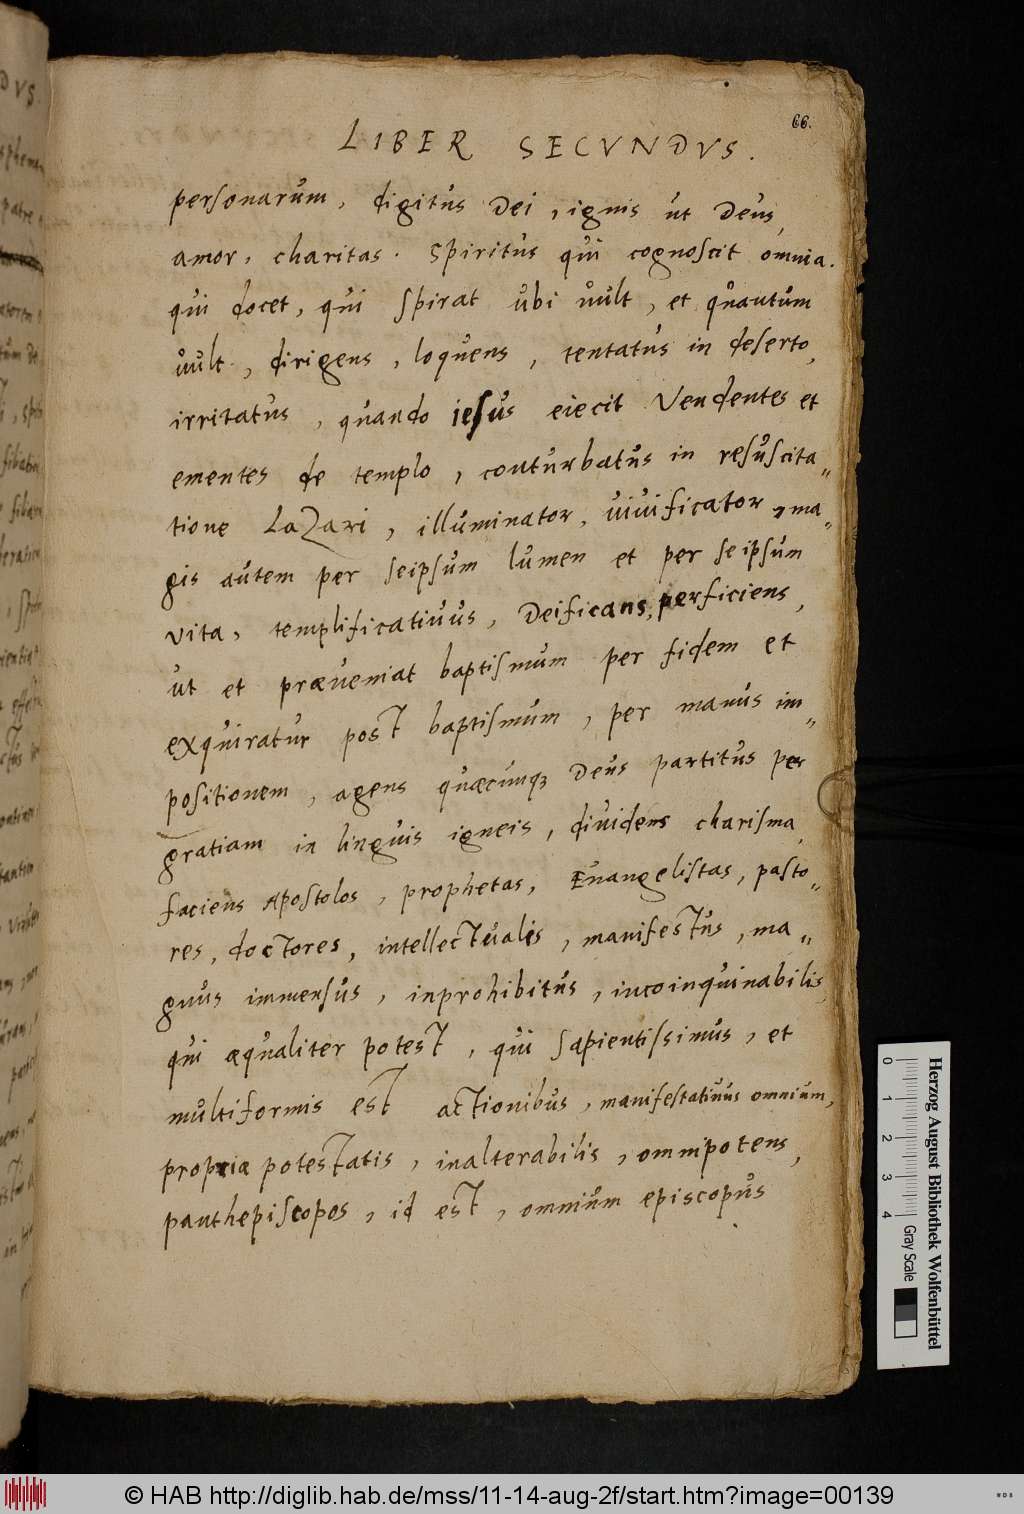 66.
LIBER SECVNDVS.
personarum, digitus Dei, ignis ut Deus,
amor, charitas. Spiritus qui cognoscit omnia.
qui docet, qui spirat ubi uult, et quantum
uult, dirigens, loquens, tentatus in deserto,
irritatus, quando iesus eiecit vendentes et
ementes de templo, conturbatus in resuscita„
tione Lazari, illuminator, uiuificator, ma„
gis autem per seipsum lumen et per seipsun
vita, templificatiuus, Deificans, perficiens,
ut et præueniat baptismum per fidem et
exquiratur post baptismum, per manus im„
positionem, agens quæcunqꝫ Deus partitus per
gratiam in linguis igneis, diuidens charisma,
faciens Apostolos, prophetas, Euangelistas, pasto„
res, doctores, intellectualis, manifestus, ma„
gnus immensus, inprohibitus, incoinquinabilis,
qui æqualiter potest, qui sapientissimus, et
multiformis est actionibus, manifestatiuus omnium,
propriæ potestatis, inalterabilis, omnipotens,
panthepiscopos, id est, omnium episcopus
Herzog August Bibliothek Wolfenbüttel
0 1 2 3 4 Gray Scale
© HAB http://diglib.hab.de/mss/11-14-aug-2f/start.htm?image=00139